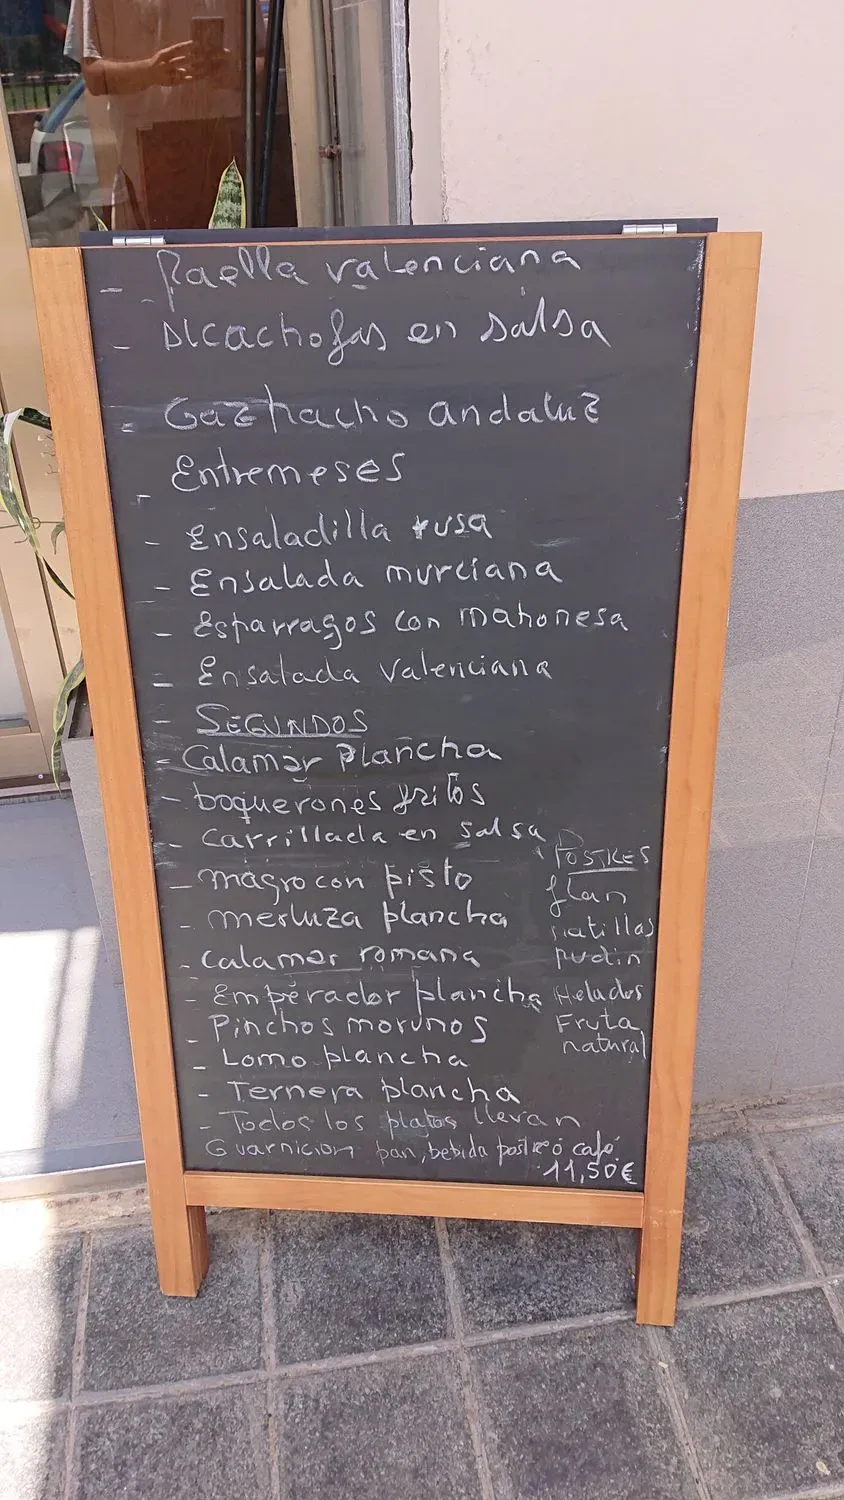 - Paella valenciana
- Alcachofas en salsa
- Gazpacho andaluz
- Entremeses
- Ensaladilla rusa
- Ensalada murciana
- Esparragos con mahonesa
- Ensalada valenciana
- SEGUNDOS
- Calamar plancha
- boquerones fritos
- carrillada en salsa
- magro con pisto
- merluza plancha
- calamar romana
- Emperador plancha
- Pinchos morunos
- Lomo plancha
- Ternera plancha
- Todos los platos llevan
Guarnicion pan, bebida postre ó café
11,50€
POSTRES
flan
natillas
pudin
Helados
Fruta
natural